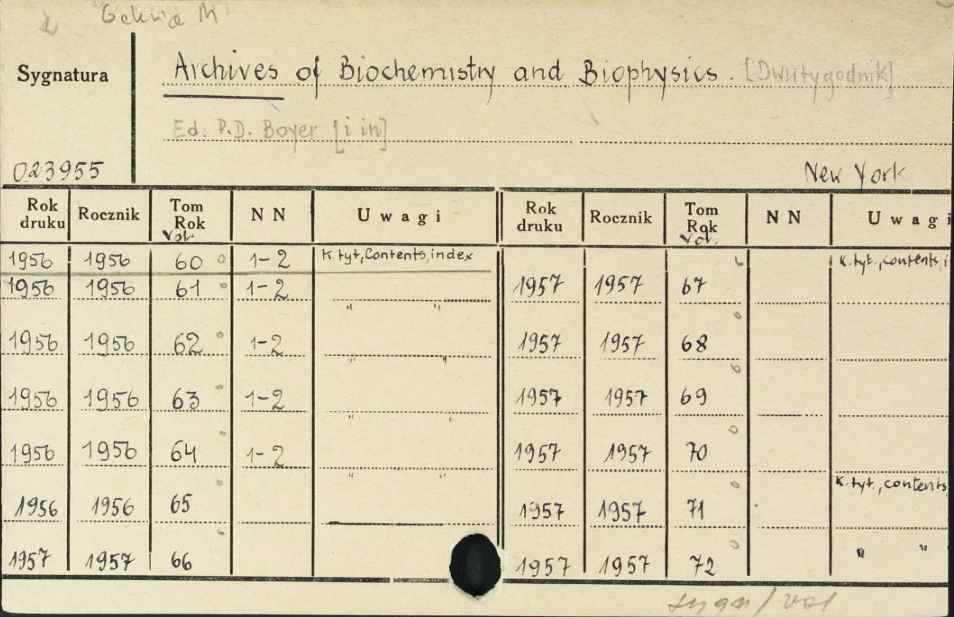 Sygnatura
Archives of Biochemistry and Biophysics. [Dwutygodnik]
Ed. P.D. Boyer [i in]
023955
New York
Rok druku Rocznik Tom Rok Vol. NN Uwagi Rok druku Rocznik Tom Rok Vol. NN Uwagi
1956 1956 60 1-2 K. tyt, Contents, index K. tyt., contents, i
1956 1956 61 1-2 " " 1957 1957 67
1956 1956 62 1-2 " " 1957 1957 68
1956 1956 63 1-2 " " 1957 1957 69
1956 1956 64 1-2 " " 1957 1957 70
1956 1956 65 1957 1957 71 K. tyt., contents
1957 1957 66 1957 1957 72 " "